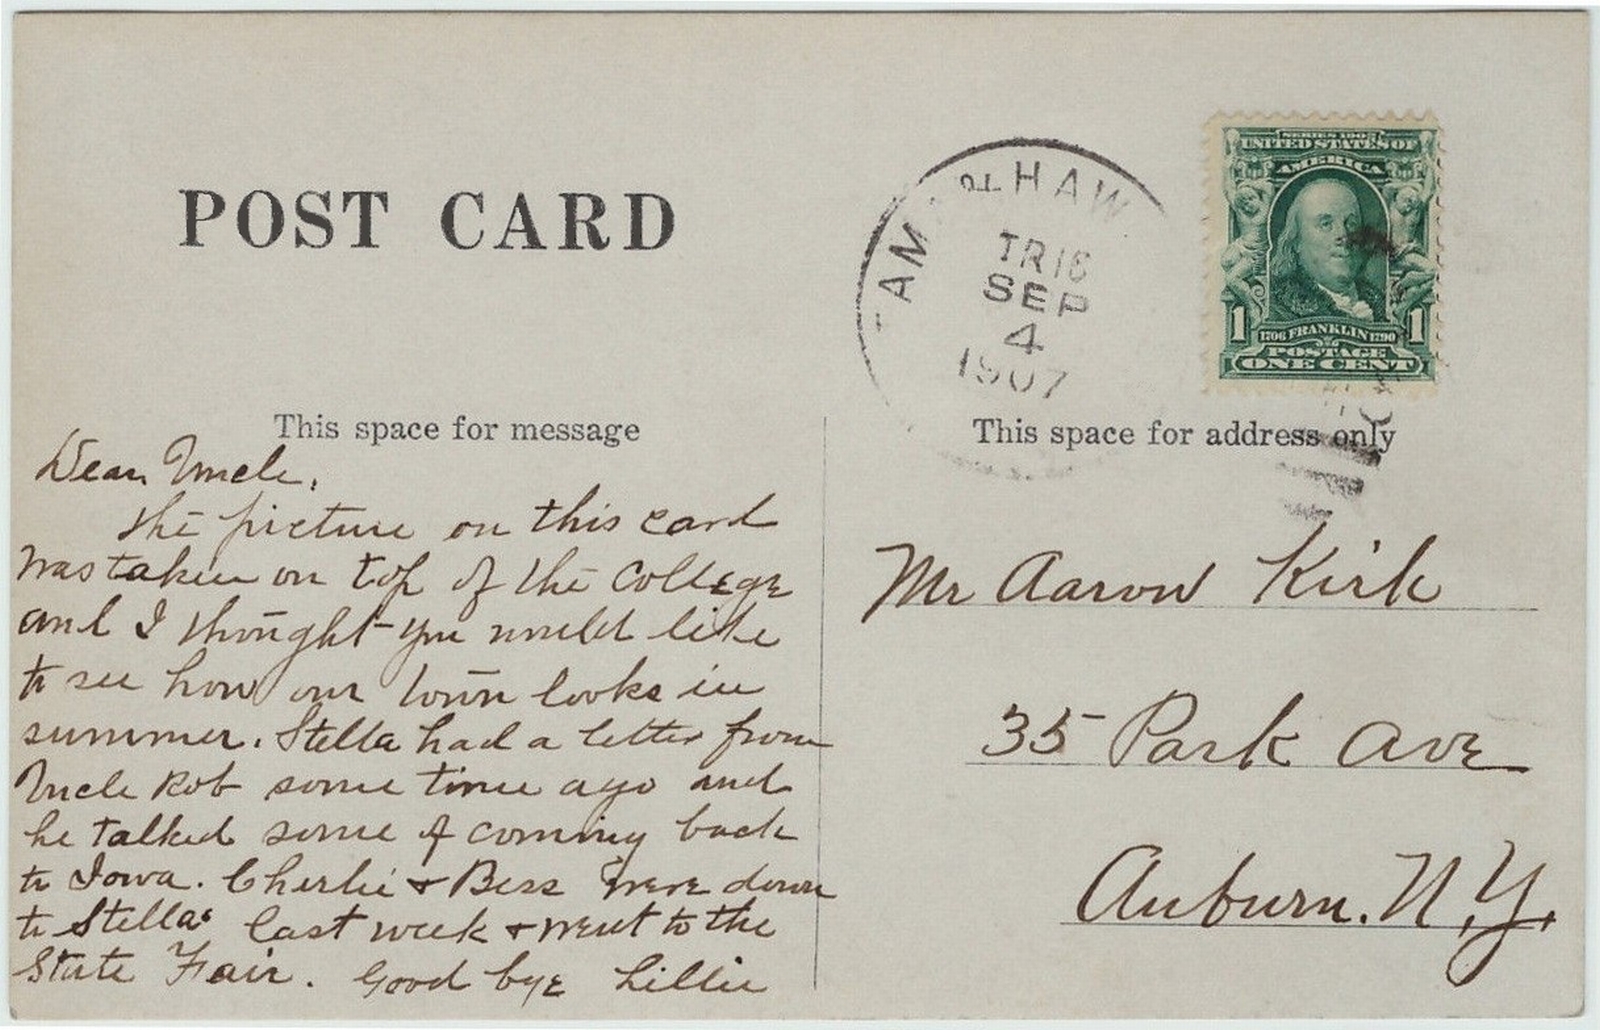 POST CARD
TAM & HAW
TR 16
SEP
4
1907
SERIES 1902
UNITED STATES OF
AMERICA
1 1
1706 FRANKLIN 1790
POSTAGE
ONE CENT
This space for message
This space for address only
Dear Uncle,
The picture on this card
was taken on top of the College
and I thought you would like
to see how our town looks in
summer. Stella had a letter from
Uncle Rob some time ago and
he talked some of coming back
to Iowa. Charlie + Bess were down
to Stellas last week + went to the
State Fair. Good bye Lillie
Mr Aaron Kirk
35 Park Ave
Auburn. N.Y.